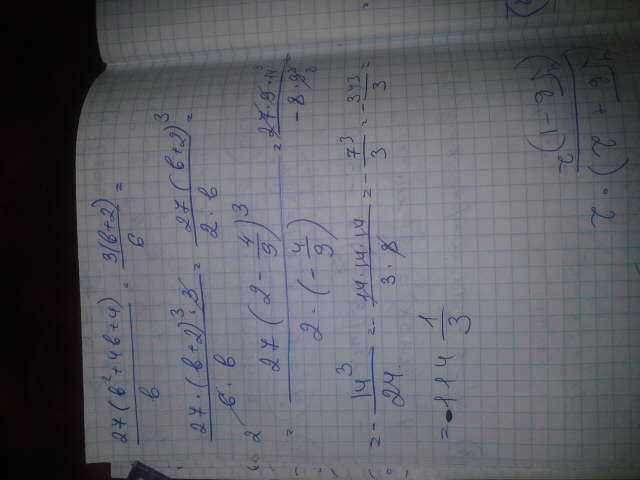 27(b²+4b+4)/b · 3(b+2)/6 =
27·(b+2)³·3/6·b = 27(b+2)³/2·b =
2
= 27(2-4/9)³/2·(-4/9) = 27·9·14³/-8·9³
= -14³/24 = -14·14·14/3·8 = -7³/3 = -343/3 =
= -114 1/3